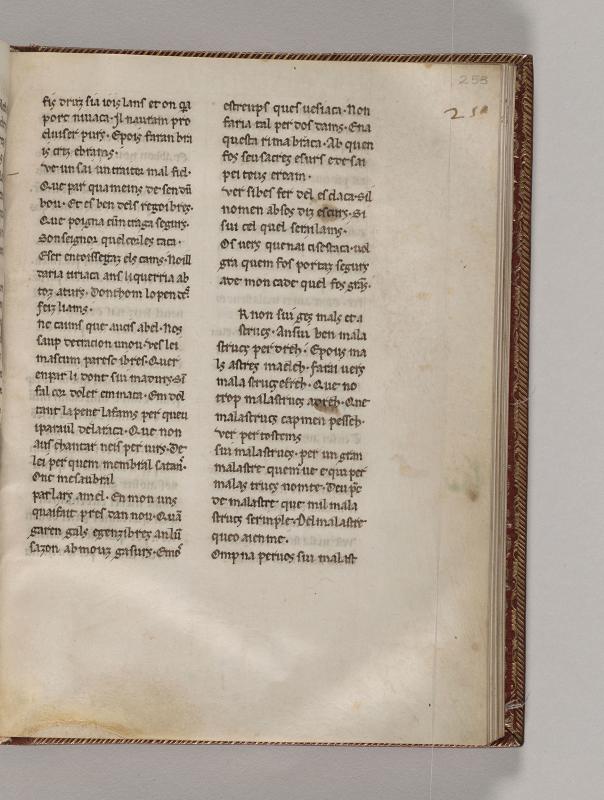 253
250
fis druz sia iois lans et on qa
porc niuaca. Il nautain pro
eluiser purs. Epois faran bri
is criz ebrains.
De un sai un traitor mal fiel.
Que par qua meins de sen dū
bou. Et es ben dels regoi bres.
Que poigna cūn traga segurs.
Son seignor quel col les taca.
Eser entoissegaz els cans. No ill
daria tiriaca ans li querria ab
toz aturs. Don thom lo pen
feiz liams.
ne caims que aucis abel. Nos
saup detracion unou. ves lei
mas cum paresc ibres. Quer
enpar li dont sui maduis. Si
fal cor doler en inaca. Em dol
tant la pent la fams per queu
iparauil delataca. Que non
aus chantar neis per uirs. De
lei per quem membral satan.
Onc mesaubril
parlars am el. En mon uns
quaifait pres dan nou. Quā
garen gals egenzibres an lū
sazon ab mouz gasurs. Emo
estreups ques uesiaca. Non
faria tal per dos dams. Ena
questa rima braca. Ab quen
fos seu sacres esurs e de sai
pei tous ereain.
ver sibes fer del es claca. Sil
nomen absos diz escurs. Si
sui cel quel serulams.
Os vers quenai ensestaca. uol
gra quem fos portaz segurs
ave mon cade quel fos grās.
R non sui ges mals et a
strucs. An sui ben mala
strucs per dreh. Epois ma
ls astres ma eleh. Farai vers
mala strucs efreh. Que no
trop malastrucs adreh. Que
malastrucs cap men pesseh.
ver per tostems
sui malastrucs. per un gran
malastre quem ue e qui per
malas trucs nomte. Deu pc
de malastre que mil mala
strucs seruiple. Del malastre
queo aien me.
Omp na peruos sui malast